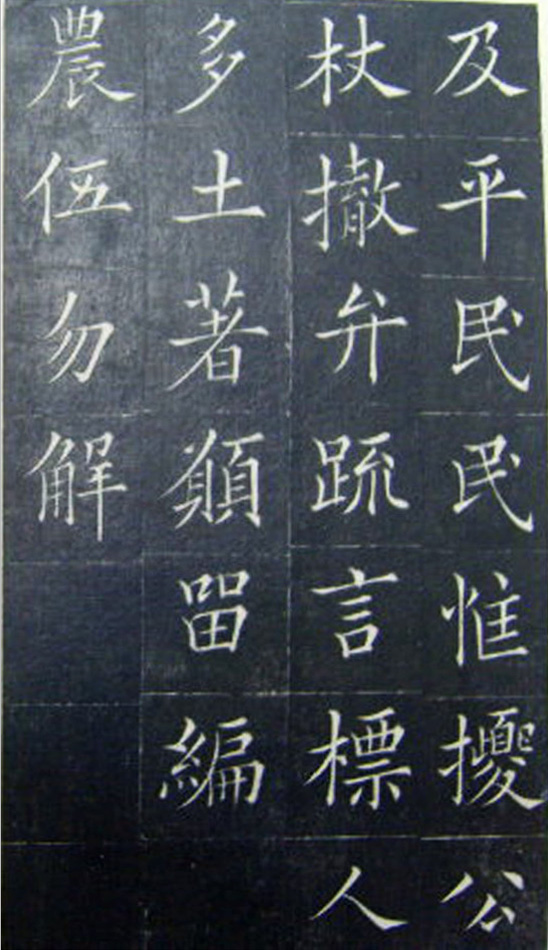 及平民民恇擾公
杖撤弁疏言標人
多土著願留編
農伍勿解